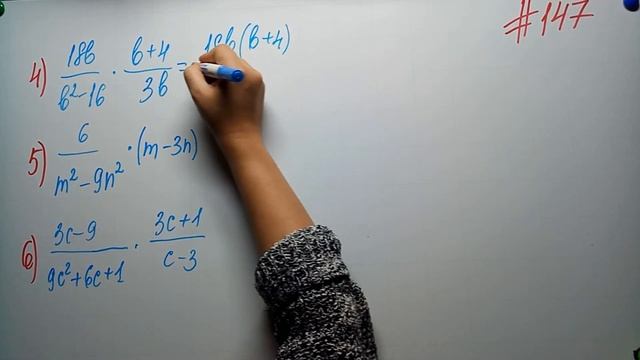 #147
4) 18b/(b²-16) · (b+4)/3b = 18b(b+4)
5) 6/(m²-9n²) · (m-3n)
6) (3c-9)/(9c²+6c+1) · (3c+1)/(c-3)